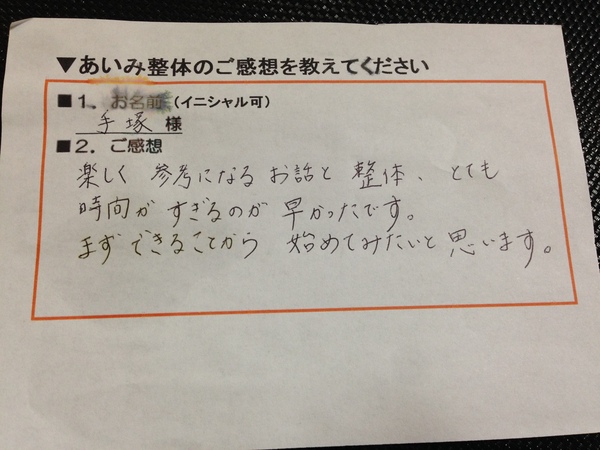 ▼あいみ整体のご感想を教えてください
■1、お名前(イニシャル可)
手塚 様
■2．ご感想
楽しく 参考になる お話と 整体、とても
時间が すぎるのが 早かったです。
まず できることから 始めてみたいと 思います。